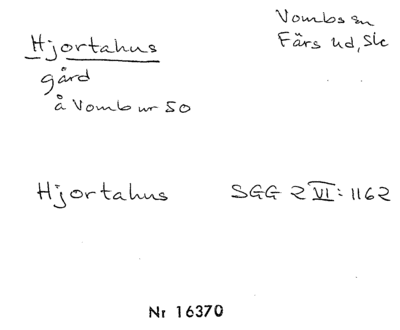 Hjortahus
Vombs sn
Färs hd, Sk
gård
å Vomb nr 50
Hjortahus SGG 2 VI: 1162
Nr 16370